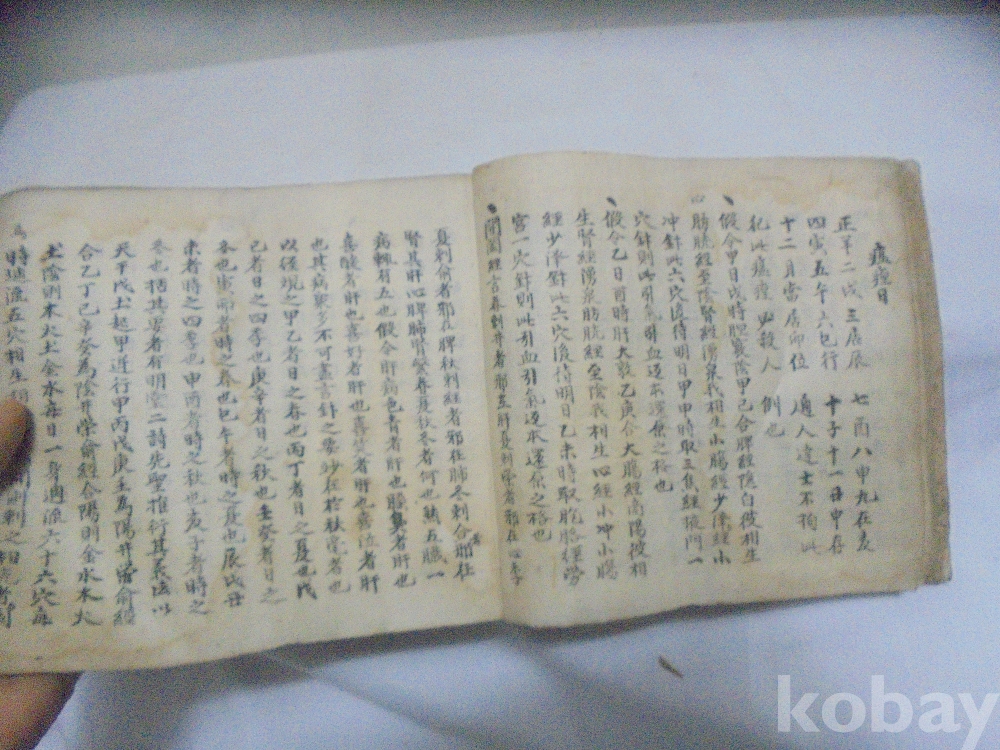 瘟㾮日
正羊二戌三居辰 七酉八申九在亥
四寅五午六包行 十子十一日申存
十二月當居卯位 通人達士不拘此
犯此瘟㾮必殺人 例也
假令甲日戌時胆竅陰甲己合脾經隱白彼相生
膀胱經至陰腎經湧泉我相生小腸經少澤經小
冲針此六穴後待明日甲申時取三焦經液門一
穴針則此引氣引血返本還原之格也
假令乙日酉時肝大敦乙庚合大腸經商陽彼相
生腎經湧泉膀胱經至陰我相生心經小冲小腸
經少澤針此六穴後待明日乙未時取胞絡經勞
宮一穴針則此引血引氣返本還原之格也
閭 經言春刺井者邪在肝夏刺滎者邪在心季
夏刺俞者邪在脾秋刺經者邪在肺冬刺合者邪在
腎其肝心脾肺腎繫春夏秋冬者何也 五臟一
病輒有五也假令肝病色青者肝也臊臭者肝也
喜酸者肝也喜好者肝也喜 者肝也喜泣者肝
也其病衆多不可盡言針之要妙在於秋毫者也
以經規之甲乙者日之春也丙丁者日之夏也戊
己者日之四季也庚辛者日之秋也壬癸者日之
冬也寅卯者時之春也巳午者時之夏也辰戌丑
未者時之四季也申酉者時之秋也亥子者時之
冬也括其要者有明陰二詩先聖推行其義法以
天干戊土起甲逆行甲丙戊庚壬為陽井滎俞經
合乙丁己辛癸為陰井滎俞經合陽則金水木火
土陰則木火土金水每日一身週流六十六穴每
時週流五穴相生相 刺之
kobay